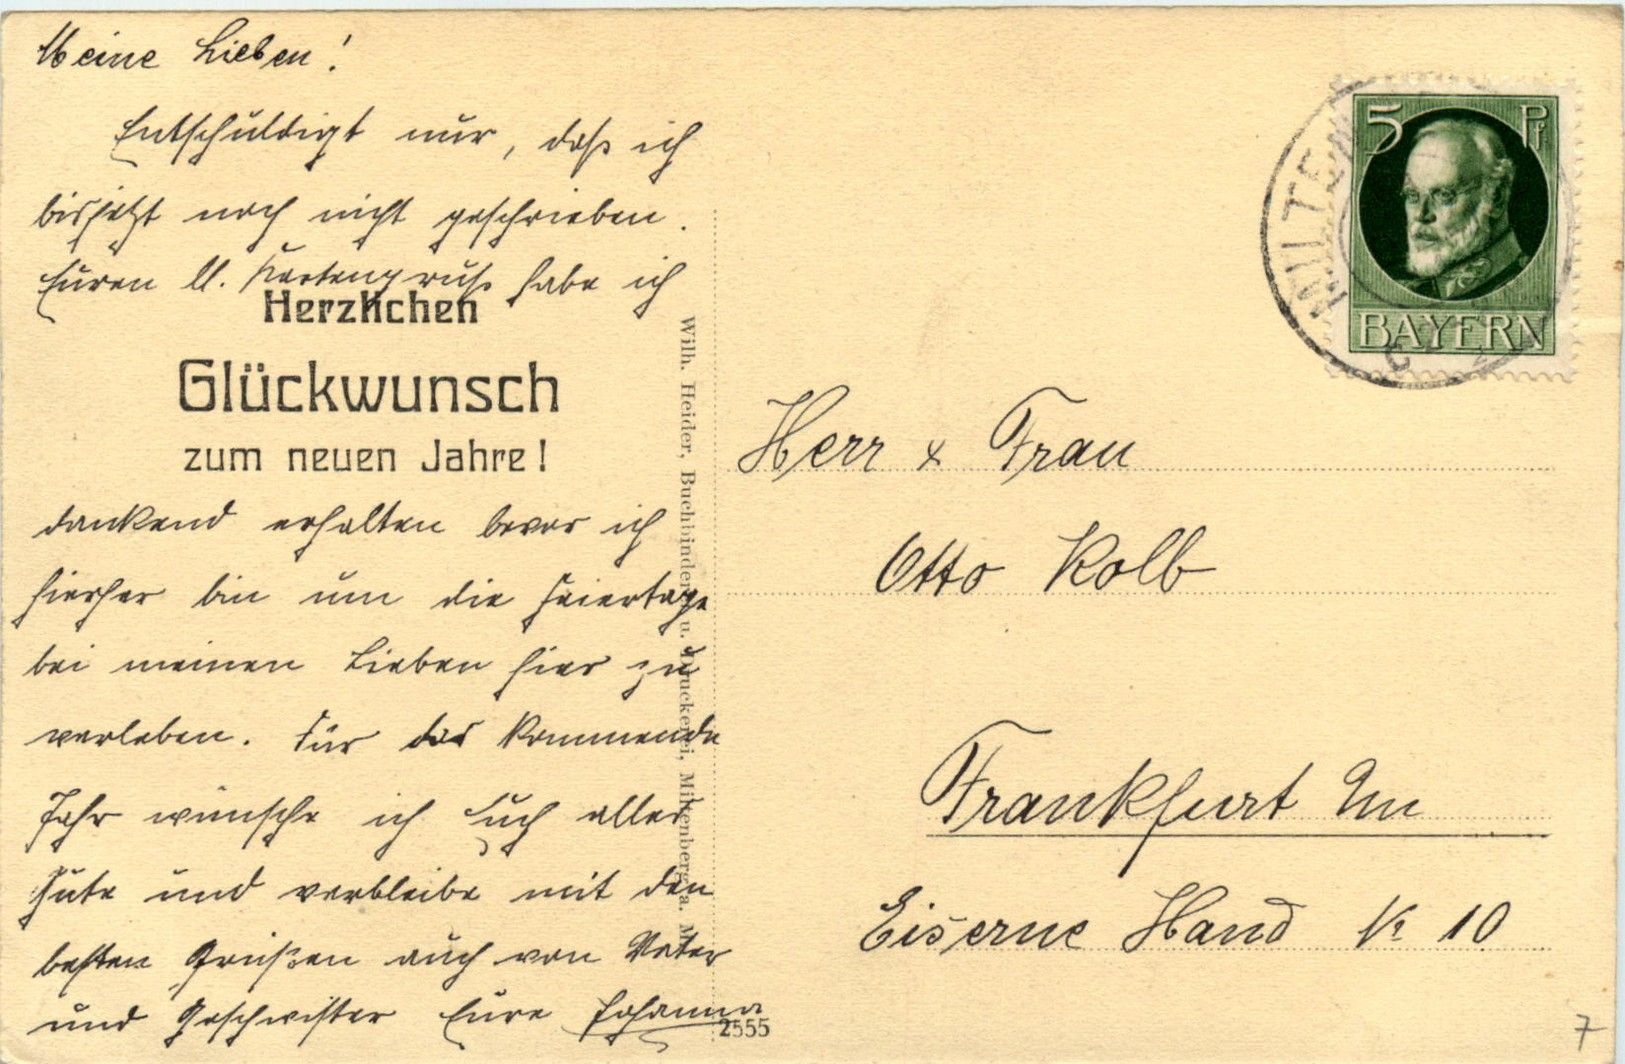 Meine Lieben!
Entschuldigt nur, daß ich
bisjetzt noch nicht geschrieben.
Euren ll. Kartengruß habe ich
Herzlichen
Glückwunsch
zum neuen Jahre!
dankend erhalten bevor ich
hierher bin um die Feiertage
bei meinen Lieben hier zu
verleben. Für das kommende
Jahr wünsche ich Euch alles
Gute und verbleibe mit den
besten Grüßen auch von Vater
und Geschwister Eure Johanna
Wilh. Heider, Buchbinderei u. Druckerei, Miltenberg a. M.
2555
MILTEN
5 Pf
BAYERN
Herr & Frau
Otto Kolb
Frankfurt
Eiserne Hand № 10
7